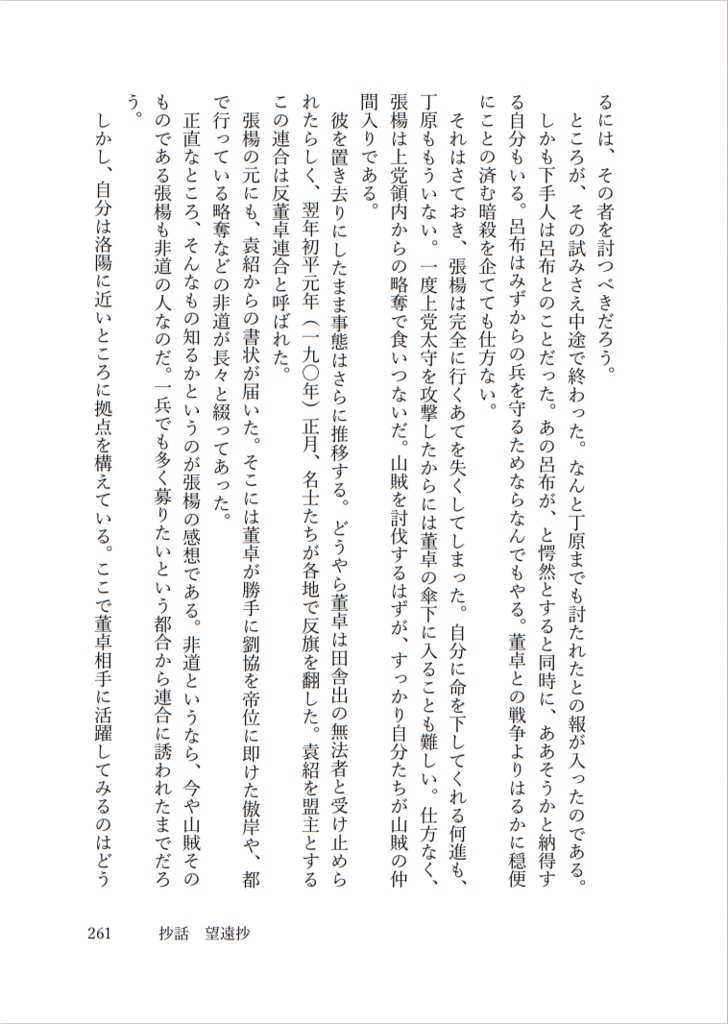 るには、その者を討つべきだろう。
　ところが、その試みさえ中途で終わった。なんと丁原までも討たれたとの報が入ったのである。
　しかも下手人は呂布とのことだった。あの呂布が、と愕然とすると同時に、ああそうかと納得す
る自分もいる。呂布はみずからの兵を守るためならなんでもやる。董卓との戦争よりはるかに穏便
にことの済む暗殺を企てても仕方ない。
　それはさておき、張楊は完全に行くあてを失くしてしまった。自分に命を下してくれる何進も、
丁原ももういない。一度上党太守を攻撃したからには董卓の傘下に入ることも難しい。仕方なく、
張楊は上党領内からの略奪で食いつないだ。山賊を討伐するはずが、すっかり自分たちが山賊の仲
間入りである。
　彼を置き去りにしたまま事態はさらに推移する。どうやら董卓は田舎出の無法者と受け止めら
れたらしく、翌年初平元年（一九〇年）正月、名士たちが各地で反旗を翻した。袁紹を盟主とする
この連合は反董卓連合と呼ばれた。
　張楊の元にも、袁紹からの書状が届いた。そこには董卓が勝手に劉協を帝位に即けた傲岸や、都
で行っている略奪などの非道が長々と綴ってあった。
　正直なところ、そんなもの知るかというのが張楊の感想である。非道というなら、今や山賊その
ものである張楊も非道の人なのだ。一兵でも多く募りたいという都合から連合に誘われたまでだろ
う。
　しかし、自分は洛陽に近いところに拠点を構えている。ここで董卓相手に活躍してみるのはどう
261　抄話　望遠抄